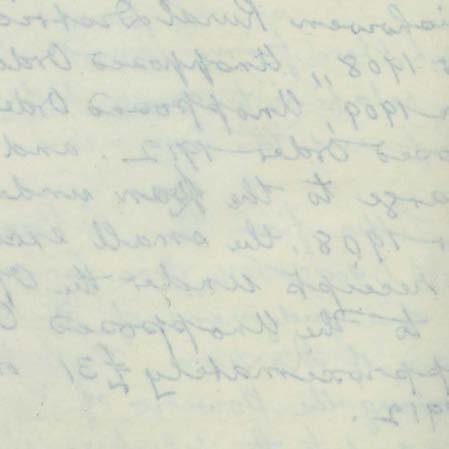 Rural District
1908, Unopposed Orde
1909, Unopposed Orde
osed Order 1912. and
arge to the Loan unde
1908 the small exce
receipts under the Op
to the Unopposed O
pproximately £31
912.